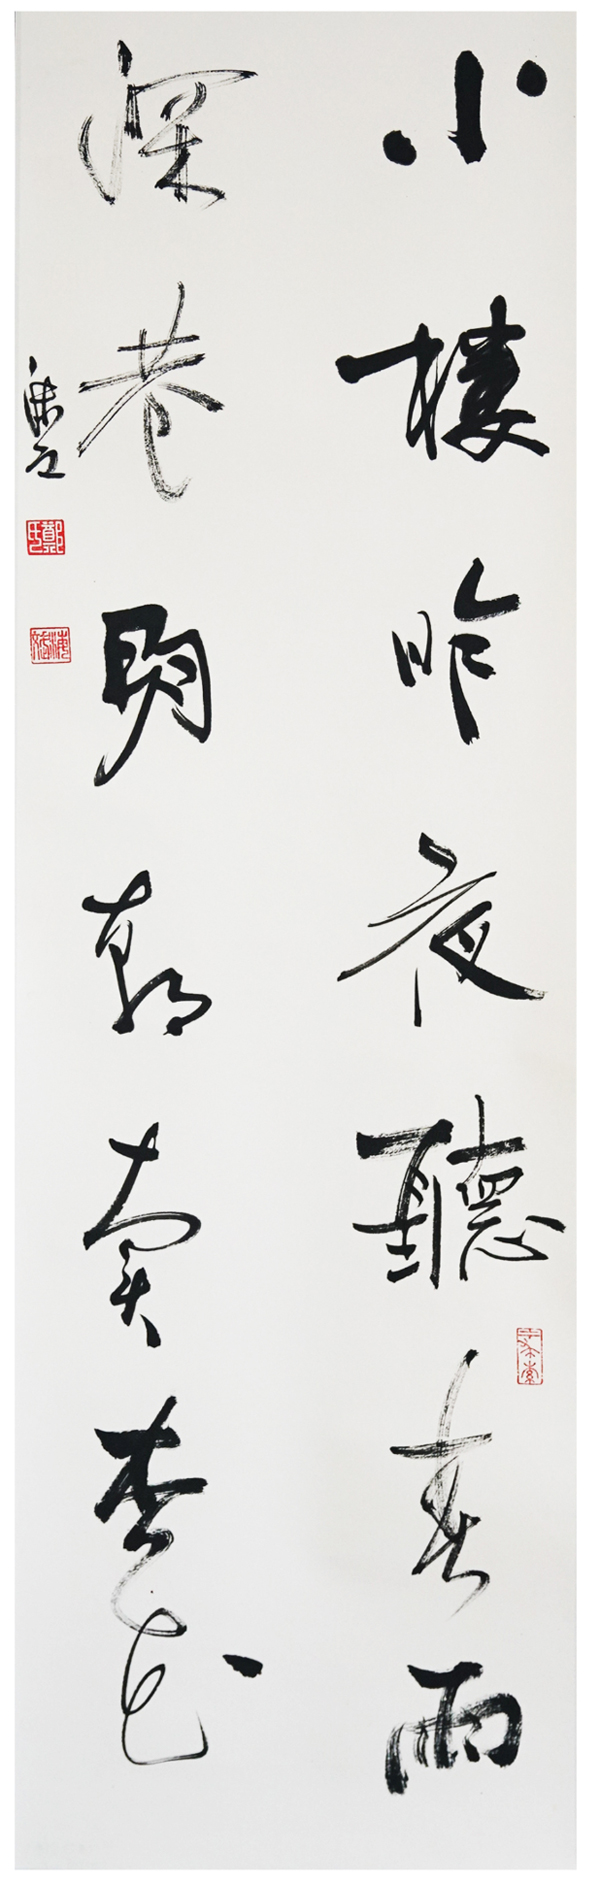 小樓昨夜聽春雨
深巷明朝賣杏花